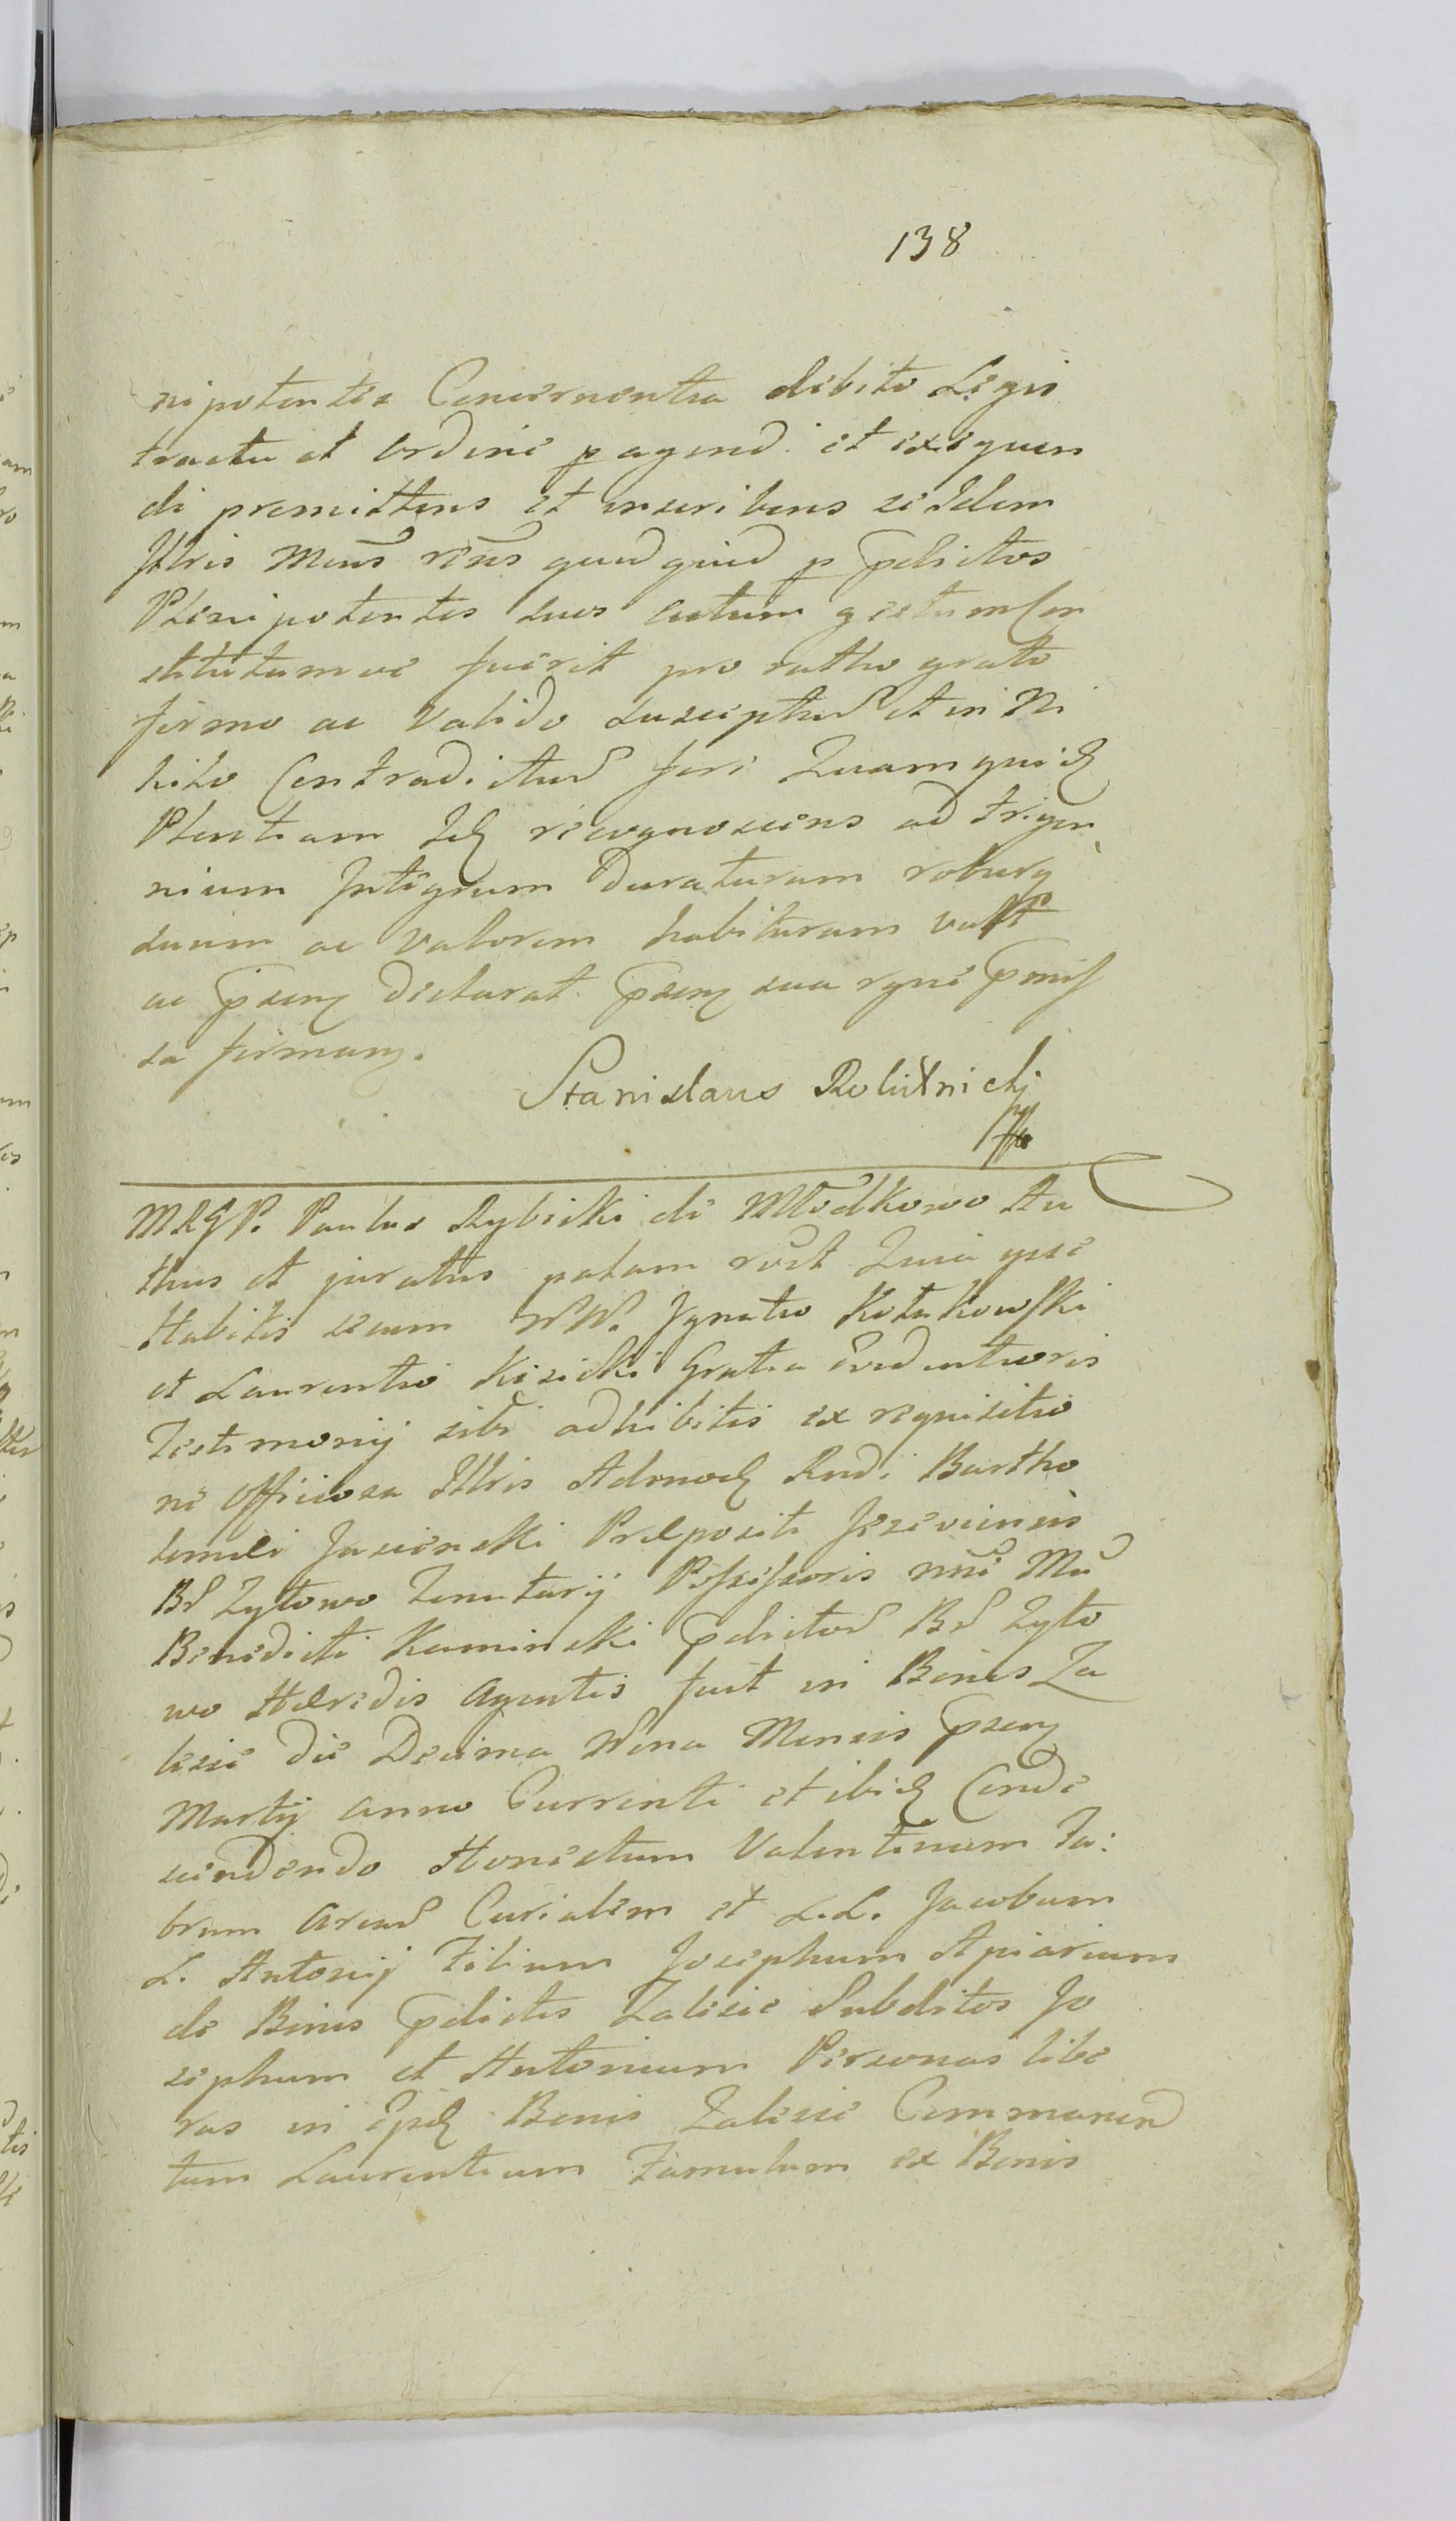 138
nipotentiæ Concernentia debito Legis
tractu et ordine p agend. et exequen
di promittens et inscribens se Idem
Illris Mens rcns quidquid p pdictos
Plenipotentes suos actum gestum Con
stitutumve fuerit pro ratho grato
firmo ac valido suscipthuŕ et in Ni
hilo Contradicthuŕ fori Quamquidȝ
Plentiam Idȝ recognoscens ad trigen
nium Integrum Duraturam roburq
suum ac valorem habituram vult
ac psenȝ Declarat. psenȝ sua rgne pmis
sa firmanȝ.
Stanislaus Roliśnicki
MRGP. Paulus Rybicki de Młodkowo Au
thus et juratus palam rvit Quia ipse
Habitis secum NN. Ignatio Kołakowski
et Laurentio Kisicki Gratia Evidentioris
Testimonij sibi adhibitis ex requisitio
ne officiosa Illris Admodȝ Rndi Bartho
lomæi Jasienski Præpositi Jezeviensis
Bŕ Zytowo Tenutarij Possessoris nne Mci
Benedicti Kaminski pdictoŕ Bŕ Zyto
wo Hæredis Agentis fuit in Bonis Za
lesie die Decima Nona Mensis psenȝ
Martij anno Currenti et ibidȝ Conde
scendendo Honestum Valentinum Fa:
brum Areaŕ Curialem et L.L. Jacobum
L. Antonij Filium Josephum Apiarium
de Bonis pdictis Zalesie Subditos Jo
sephum et Antonium Personas libe
ras in Ejsdȝ Bonis Zalesie Commanen
tem Laurentium Famulum ex Bonis